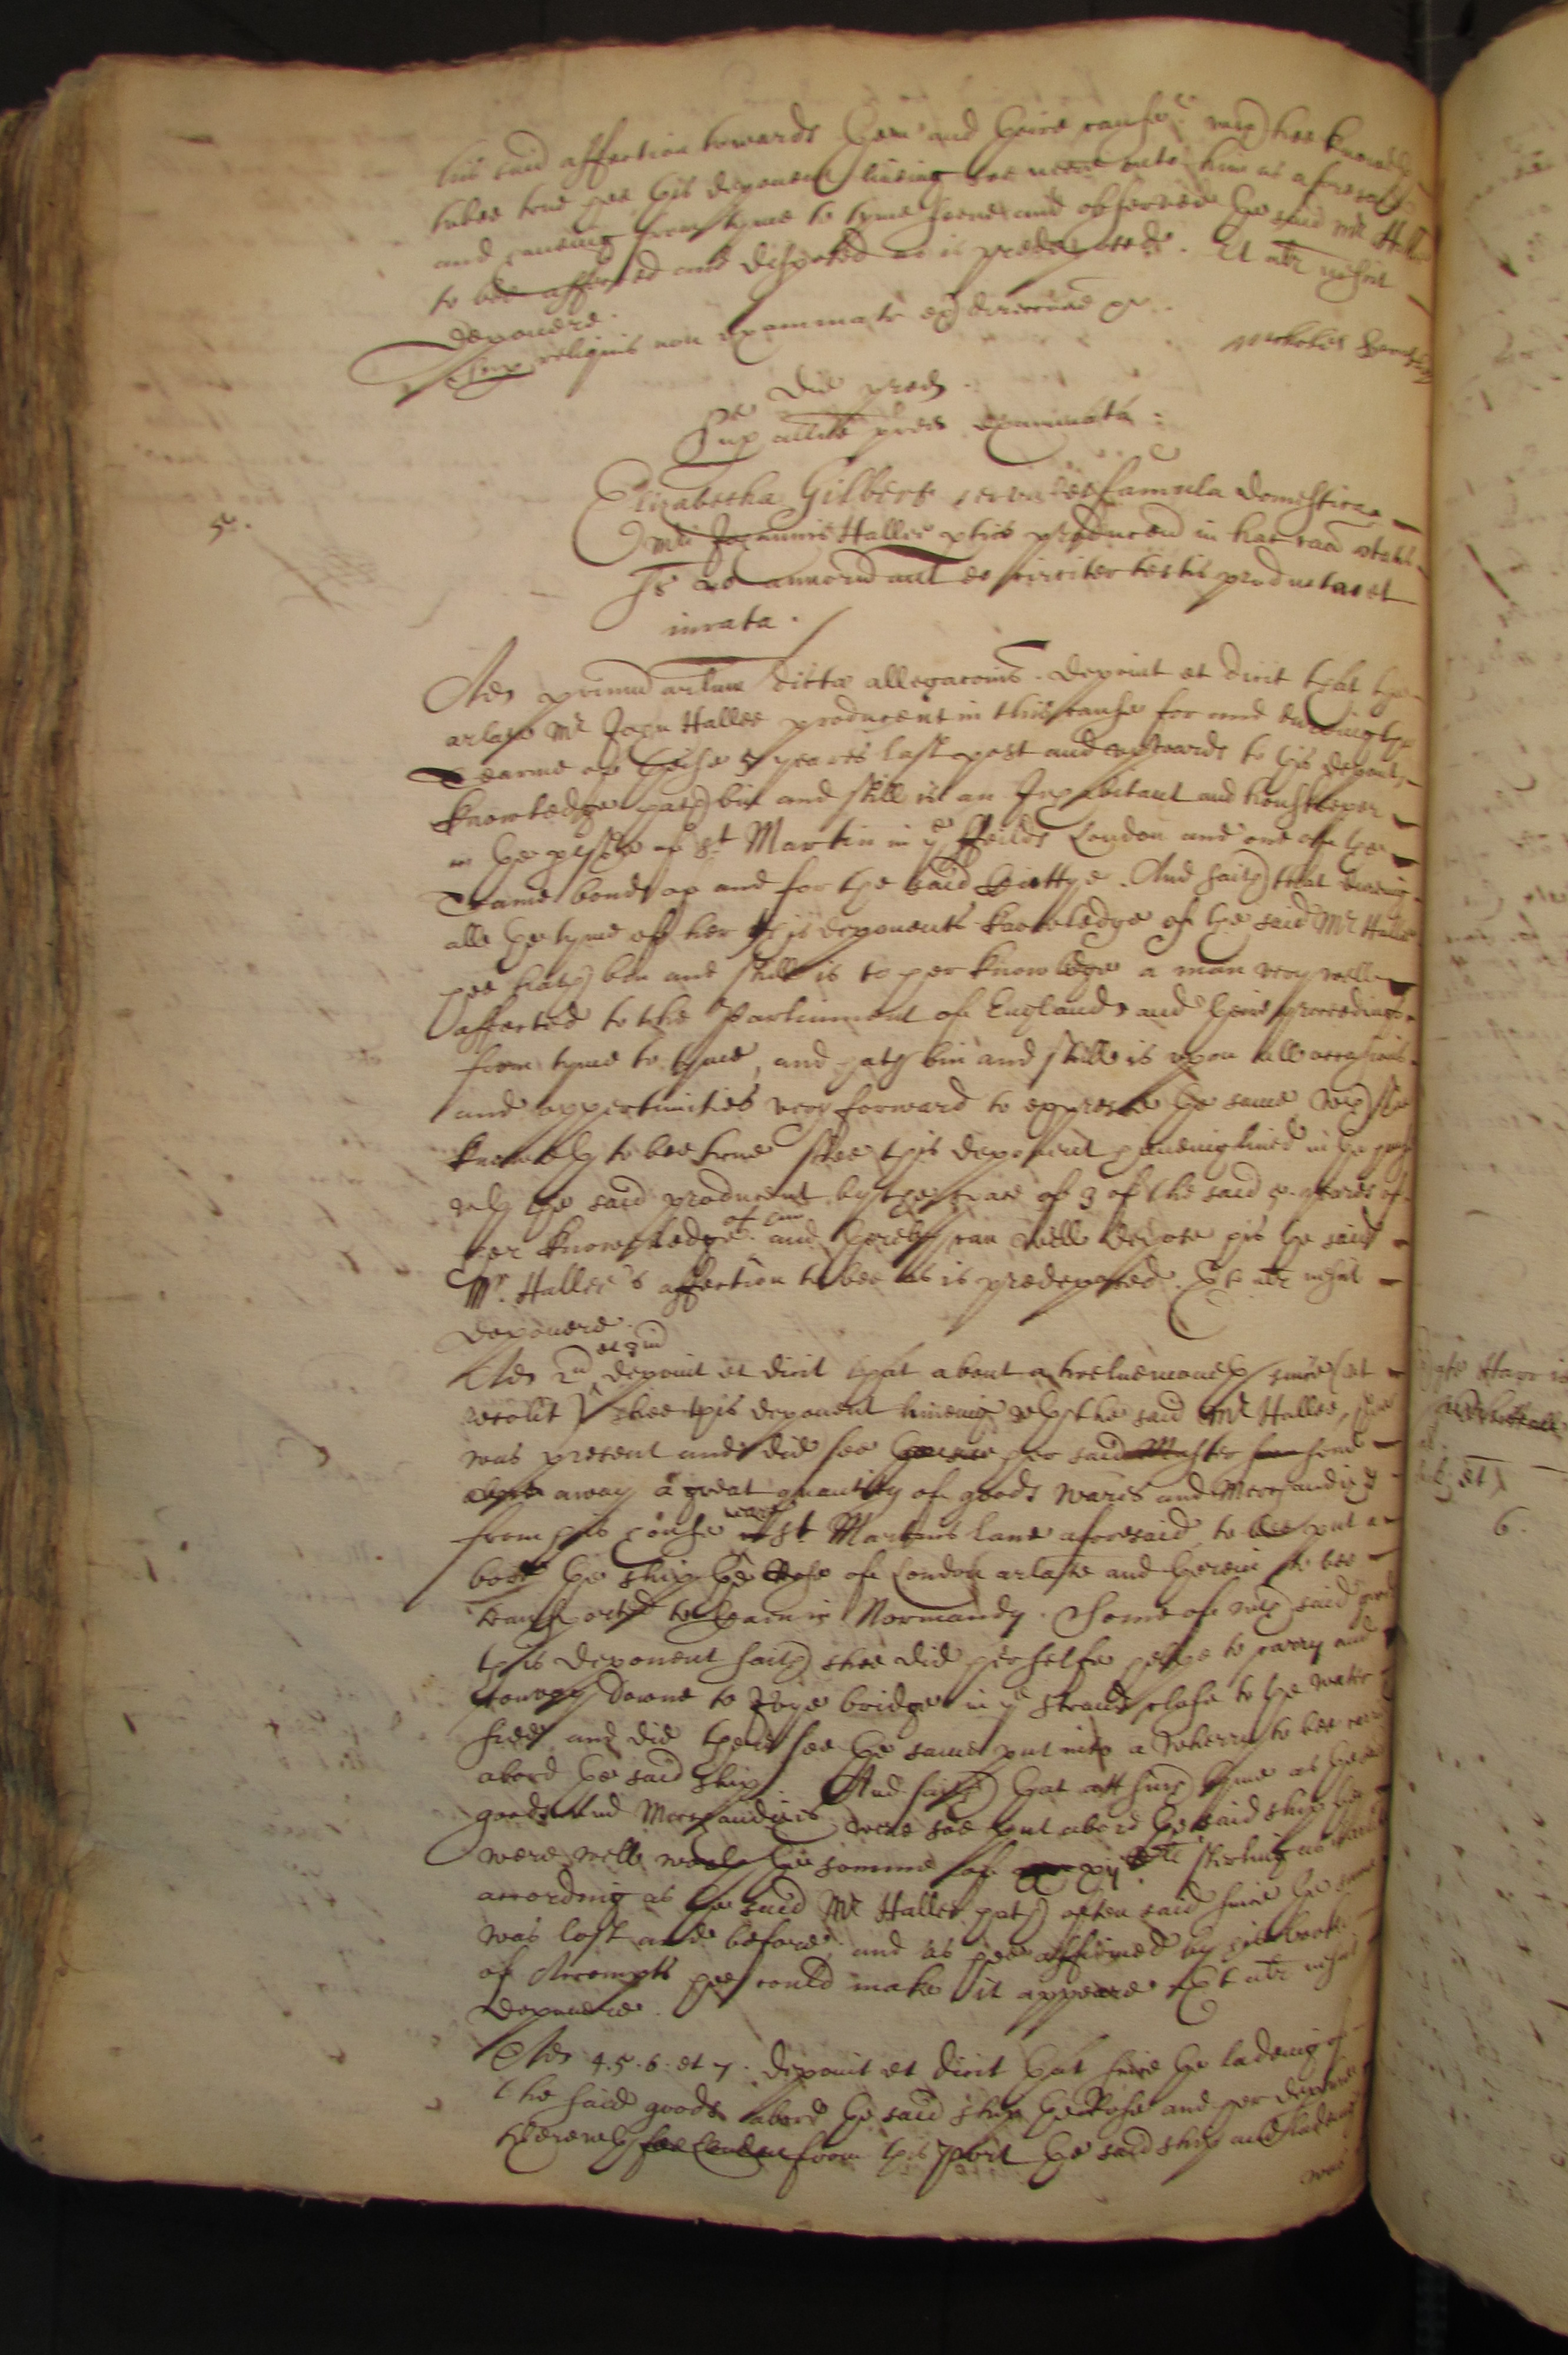 his said affection towards them and theire cause wch hee knoweth
tobee true hee this deponent liveing soe neere unto him as aforesaid
and haveing from tyme to tyme seene and observed the said Mr Hallee
to bee affected and disposed as is predeposed. Et alr nescit
deponere.
Sup reliquis non examinatr ex direccone &c.
Die pred
Sup allne pred examinata:
5.
Elizabetha Gilbert famula domestica
mri Johannis Hallee ptis producen in hac caa ætatis
annorum aut eo circiter testis producta et
iurata.
Ad primum arlum dictæ allegaconis deponit et dicit that the
arlate Mr John Hallee producent in this cause for and dureing the
tearme of these 5 yeares last past and upwards to this deponts
knowledge hath bin and still is an Inhabitant and housekeeper
in the pish of St Martin in ye ffeilds London and one of the
and for the said. And saith that dureing
all the tyme of her this deponents knowledge of the said Mr Hallee
hee hath bin and still is to her knowledge a man very well
affected to the Parliament of England and theire proceedings
from tyme to tyme, and hath bin and still is upon all occasions
and oppertunities very forward to expresse the same wch shee
knoweth to bee true shee this deponent haveing lived in the
wth the said producent by the space of 3 of the said 5. yeares of
her knowledge of him and thereby can well depose his the said
Mr. Hallee's affection to bee as is predeposed. Et alr nescit
deponere.
Ad 2um et 3um deponit et dicit that about a twelvemoneth since (et
recolit) shee this deponent liveing wth the said Mr Hallee, shee
was present and did see her said Master send
away a great quantity of goods wares and Merchandizes
from his house neare St Martins lane aforesaid to bee put a
bord the ship the Rose of London arlate and therein to bee
transported to Caen in Normandy. Some of wch said goods
this deponent saith shee did herselfe helpe to carry and
convey downe to Ivye bridge in ye Strand close to the water
side, and did there see the same put into a wherry to bee
abord the said ship. And saith that att such tyme as the
goods and Merchandizes were soe put abord the said ship they
were well worth the somme of sterling
according as the said Mr Hallee hath often said since the same
was lost and before, and as hee affirmed by his books
of Accompts hee could make it appeare Et alr nescit
deponere.
Ad 4. 5. 6. et 7. deponit et dicit that since the ladeing of
the said goods abord the said ship the Rose and her departure
therewth from this Port the said ship and ladeing
was
6.